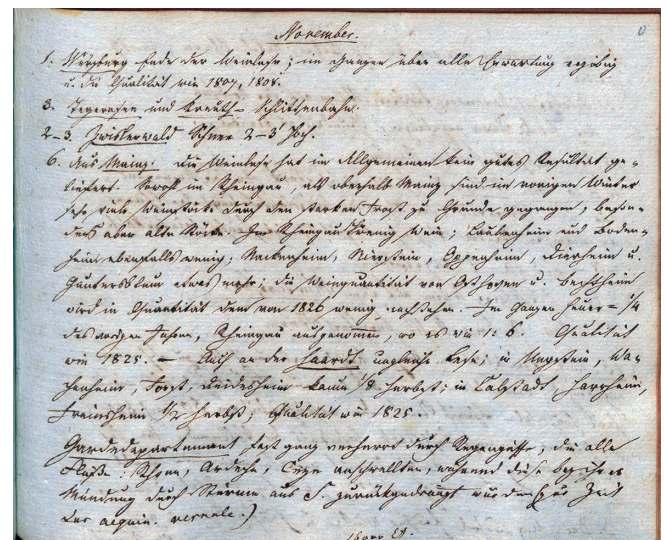 November.
1. Würzburg Ende der Weinlese; im Ganzen über alle Erwartung ergiebig
u. die Qualität wie 1807, 1808.
3. Tegernsee und Kreuth Schlittenbahn.
2-3. Zwieslerwald Schnee 2-3' hoch.
6. Aus Mainz. Die Weinlese hat im Allgemeinen kein gutes Resultat ge-
liefert. Sowohl im Rheingau, als oberhalb Mainz sind im vorigen Winter
sehr viele Weinstöcke durch den starken Frost zu Grunde gegangen, beson-
ders aber alte Stöcke. Im Rheingau wenig Wein; Laubenheim und Boden-
heim ebenfalls wenig; Nackenheim, Nierstein, Oppenheim, Dienheim u.
Guntersblum etwas mehr; die Weinquantität von Osthofen u. Bechtheim
wird in Quantität dem von 1826 wenig nachstehen. Im Ganzen heuer = 1/4
des vorigen Jahres, Rheingau ausgenommen, wo es wie 1:6. Qualität
wie 1825. — Auch an der Haardt ungleiche Lese; in Ungstein, Wa-
chenheim, Forst, Deidesheim kaum 1/8 Herbst; in Calstadt, Herxheim,
Freinsheim 1/2 Herbst; Qualität wie 1825
Garddepartement fast ganz verheert durch Regengüsse, die alle
Flüße Rhone, Ardeche, Ceze anschwellten, während diese bey ihrer
Mündung durch Stürme aus S. zurückgedrängt wurden (zur Zeit
des aequin. vernale.)